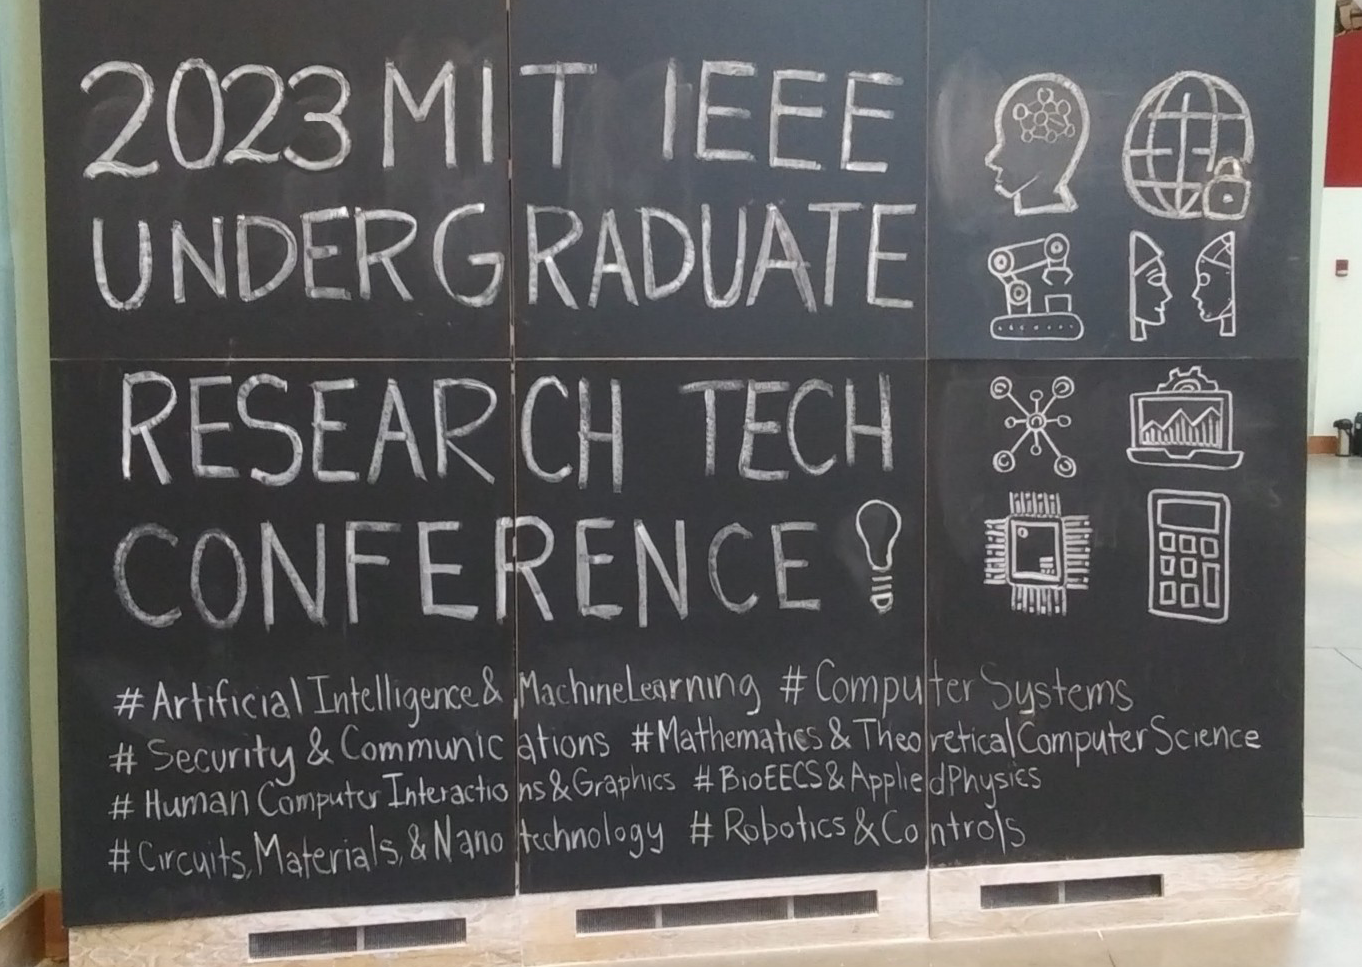 2023 MIT IEEE
UNDERGRADUATE
RESEARCH TECH
CONFERENCE
#Artificial Intelligence & MachineLearning #Computer Systems
# Security & Communications #Mathematics & TheoreticalComputerScience
# Human Computer Interactions & Graphics #BioEECS & AppliedPhysics
# Circuits, Materials, & Nanotechnology # Robotics & Controls